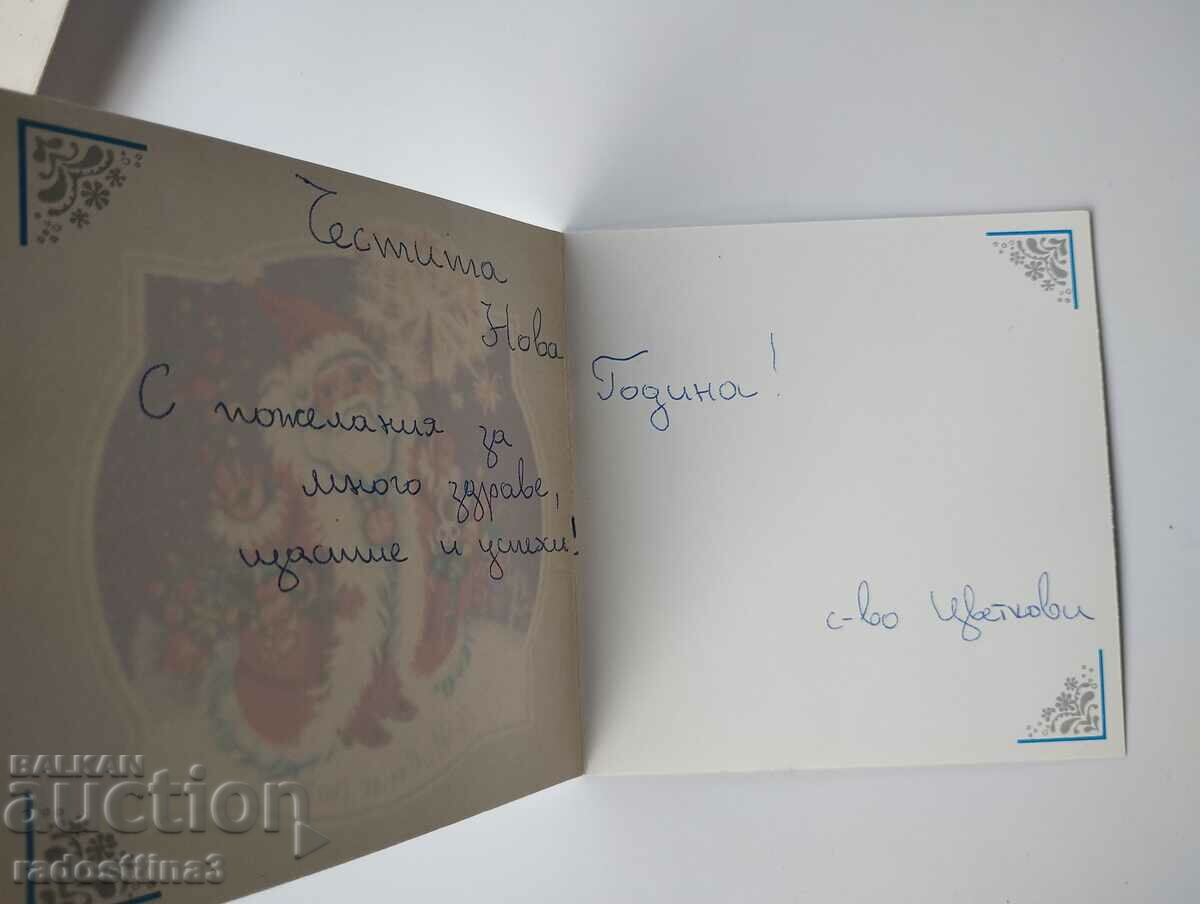 Честита
Нова Година!
С пожелания за
много здраве,
щастие и успехи!
с-во Цветкови
BALKAN
auction
radosttina3